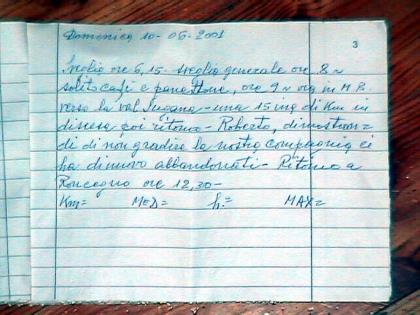 Domenica, 10-06-2001
3
Sveglia ore 6,15. Sveglia generale ore 8 ~
solito caffè e panettone, ore 9 ~ ora in M.B.
verso la val Sugana - una 15na di Km in
discesa poi ritorno - Roberto, dimostran=
do di non gradire la nostra compagnia, ci
ha di nuovo abbandonati - Ritorno a
Roncegno ore 12,30 -
Km= MED= h.= MAX=